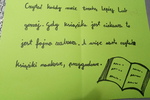 Czytać każdy może trochę lepiej lub
gorzej, gdy książka jest ciekawa to
jest fajna zabawa, a wiec nich czyta
książki naukowe, przygodowe.